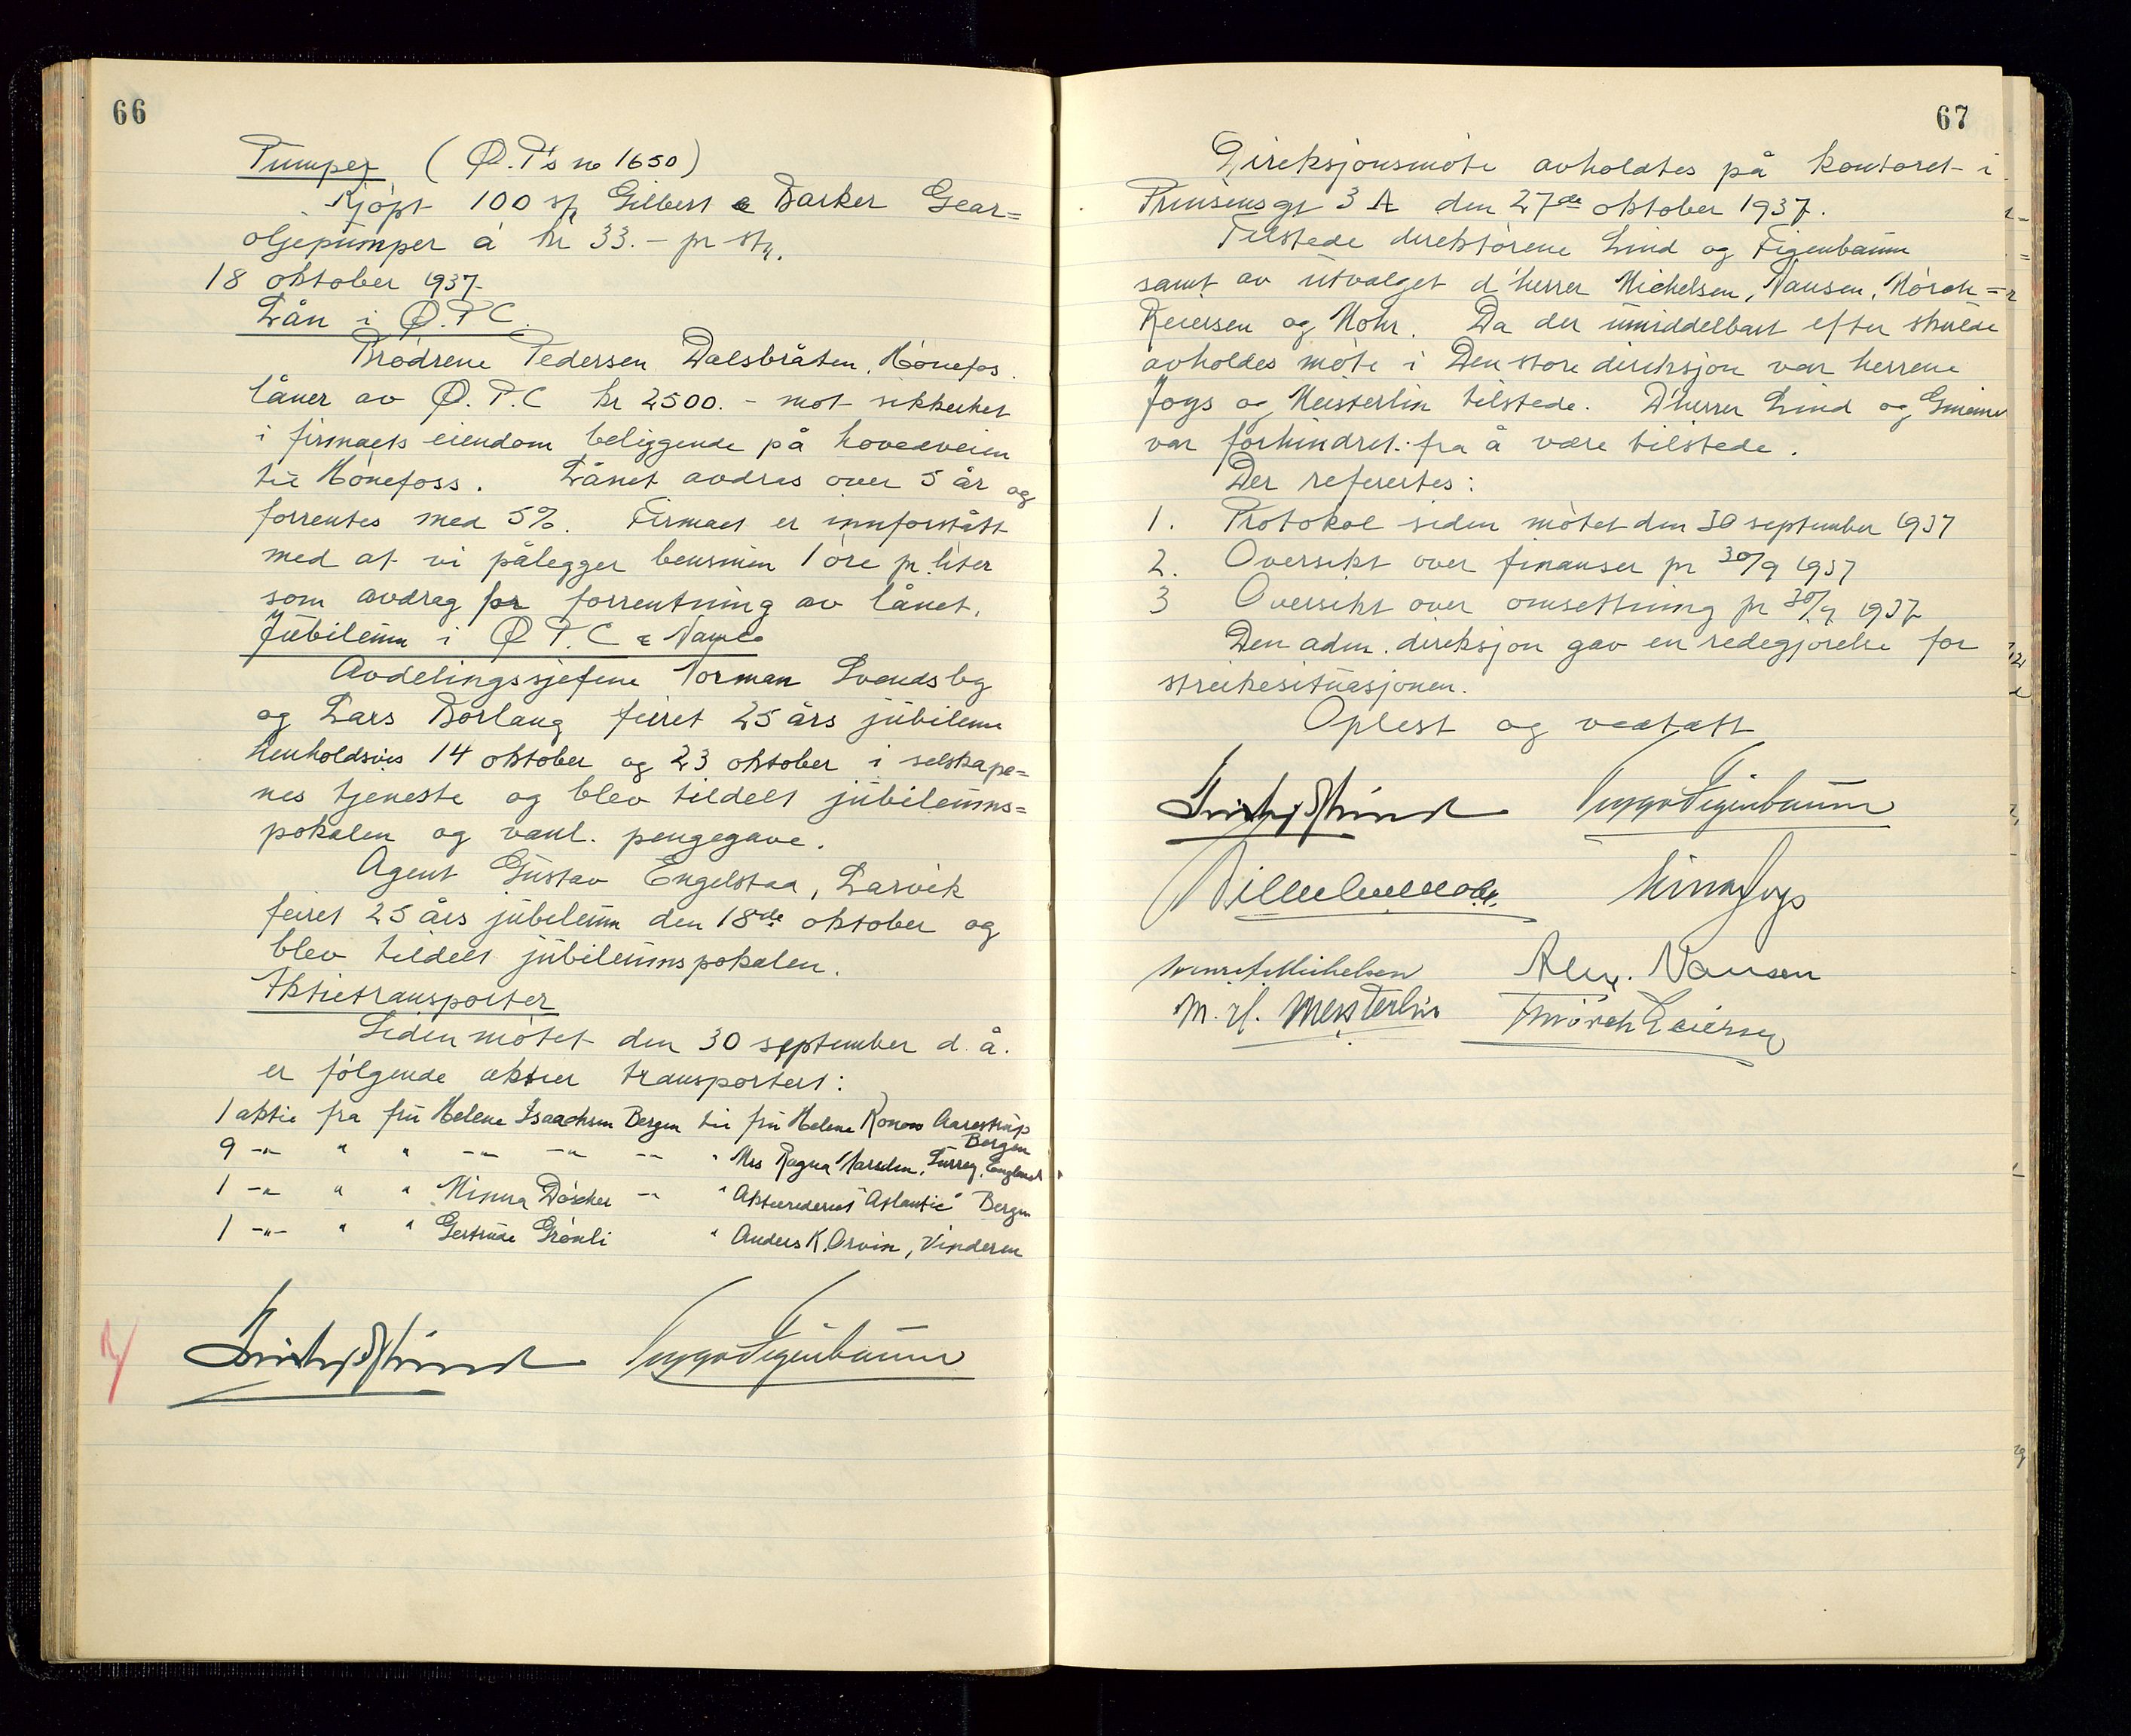 66
Pumper (Ø.P's no 1650)
Kjöpt 100 stk Gilbert & Barker Gear=
oljepumper á kr 33.- pr stk.
18 oktober 1937
Lån i Ø.P.C.
Brödrene Pedersen Dalsbråten, Hönefos.
låner av Ø.P.C kr 2500.- mot sikkerhet
i firmaets eiendom beliggende på hovedveien
til Hönefoss. Lånet avdras over 5 år og
forrentes med 5%. Firmaet er innforstått
med at vi pålegger bensinen 1 öre pr. liter
som avdrag for forrentning av lånet.
Jubileum i Ø P.C &
Avdelingssjefene Norman Svendsby
og Lars Borlaug feiret 25 års jubileum
henholdsvis 14 oktober og 23 oktober i selskape=
nes tjeneste og blev tildelt jubileums=
pokalen og vanl. pengegave.
Agent Gustav Engelstad, Larvik
feiret 25 års jubileum den 18de oktober og
blev tildelt jubileumspokalen.
Aktietransporter
Siden mötet den 30 september d.å.
er fölgende aktier transportert:
1 aktie fra fru Helene Isaachsen Bergen til fru Helene Konow Aarestrup
Bergen
9 -"- " " -"- -"- -"- " Mrs Ragna Marsden, Surrey, England
1 -"- " " Minna Döscher -"- " Aktierederiet "Atlantic" Bergen
1 -"- " " Gertrude Grönli " Anders K. Orvin, Vinderen
67
Direksjonsmöte avholdtes på kontoret i
Prinsensgt 3 A den 27de oktober 1937.
Tilstede direktörene Lind og Figenbaum
samt av utvalget d'herrer Michelsen, Nansen, Mörch=
Reiersen og Mohr. Da der umiddelbart efter skulde
avholdes möte i Den store direksjon var herrene
Joys og Meisterlin tilstede. D'herrer Lind og
var forhindret fra å være tilstede.
Der refertes:
1. Protokol siden mötet den 30 september 1937
2. Oversikt over finanser pr 30/9 1937
3 Oversikt over omsetning pr 30/9 1937
Den adm. direksjon gav en redegjörelse for
streikesituasjonen.
Oplest og vedtatt
Viggo Figenbaum
Alex. Nansen
M. H. Meisterlin Mörch Reiersen
Viggo Figenbaum